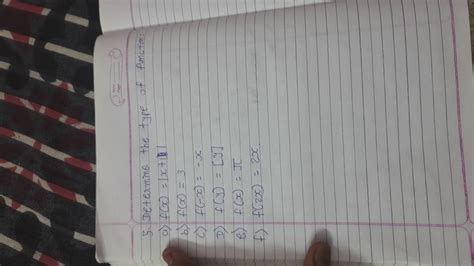 5. Determine the type of function
a) f(x) = |x+1|
b) f(x) = 3
c) f(-x) = -x
D) f(y) = [y]
e) f(x) = π
f) f(2x) = 2x